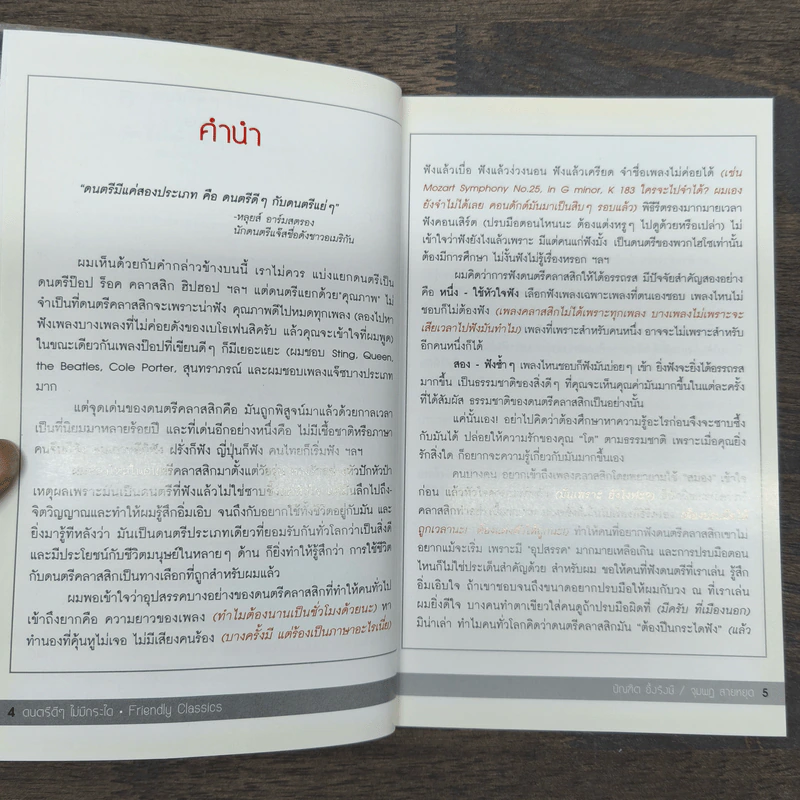 คำนำ
"ดนตรีมีแค่สองประเภท คือ ดนตรีดีๆ กับดนตรีแย่ๆ"
-หลุยส์ อาร์มสตรอง
นักดนตรีแจ๊สชื่อดังชาวอเมริกัน
ผมเห็นด้วยกับคำกล่าวข้างบนนี้ เราไม่ควร แบ่งแยกดนตรีเป็น
ดนตรีป๊อป ร็อค คลาสสิก ฮิปฮอป ฯลฯ แต่ดนตรีแยกด้วย'คุณภาพ' ไม่
จำเป็นที่ดนตรีคลาสสิกจะเพราะน่าฟัง คุณภาพดีไปหมดทุกเพลง (ลองไปหา
ฟังเพลงบางเพลงที่ไม่ค่อยดังของเบโธเฟนสิครับ แล้วคุณจะเข้าใจที่ผมพูด)
ในขณะเดียวกันเพลงป๊อปที่เขียนดีๆ ก็มีเยอะแยะ (ผมชอบ Sting, Queen,
the Beatles, Cole Porter, สุนทราภรณ์ และผมชอบเพลงแจ๊ซบางประเภท
มาก
แต่จุดเด่นของดนตรีคลาสสิกคือ มันถูกพิสูจน์มาแล้วด้วยกาลเวลา
เป็นที่นิยมมาหลายร้อยปี และที่เด่นอีกอย่างหนึ่งคือ ไม่มีเชื้อชาติหรือภาษา
ฝรั่งก็ฟัง ญี่ปุ่นก็ฟัง คนไทยก็เริ่มฟัง ฯลฯ
คลาสสิกมาตั้งแต่วัย หัวปักหัวปำ
เหตุผลเพราะมันเป็นดนตรีที่ฟังแล้วไม่ใช่ซาบซึ้ง ลึกไปถึง-
จิตวิญญาณและทำให้ผมรู้สึกอิ่มเอิบ จนถึงกับอยากใช้ทั้งชีวิตอยู่กับมัน และ
ยิ่งมารู้ทีหลังว่า มันเป็นดนตรีประเภทเดียวที่ยอมรับกันทั่วโลกว่าเป็นสิ่งดี
และมีประโยชน์กับชีวิตมนุษย์ในหลายๆ ด้าน ก็ยิ่งทำให้รู้สึกว่า การใช้ชีวิต
กับดนตรีคลาสสิกเป็นทางเลือกที่ถูกสำหรับผมแล้ว
ผมพอเข้าใจว่าอุปสรรคบางอย่างของดนตรีคลาสสิกที่ทำให้คนทั่วไป
เข้าถึงยากคือ ความยาวของเพลง (ทำไมต้องนานเป็นชั่วโมงด้วยนะ) หา
ทำนองที่คุ้นหูไม่เจอ ไม่มีเสียงคนร้อง (บางครั้งมี แต่ร้องเป็นภาษาอะไรเนี่ย)
4 ดนตรีดีๆ ไม่มีกระได • Friendly Classics
ฟังแล้วเบื่อ ฟังแล้วง่วงนอน ฟังแล้วเครียด จำชื่อเพลงไม่ค่อยได้ (เช่น
Mozart Symphony No.25, in G minor, K 183 ใครจะไปจำได้? ผมเอง
ยังจำไม่ได้เลย คอนดักต์มันมาเป็นสิบๆ รอบแล้ว) พิธีรีตรองมากมายเวลา
ฟังคอนเสิร์ต (ปรบมือตอนไหนนะ ต้องแต่งหรูๆ ไปดูด้วยหรือเปล่า) ไม่
เข้าใจว่าฟังยังไงแล้วเพราะ มีแต่คนแก่ฟังมั้ง เป็นดนตรีของพวกไฮโซเท่านั้น
ต้องมีการศึกษา ไม่งั้นฟังไม่รู้เรื่องหรอก ฯลฯ
ผมคิดว่าการฟังดนตรีคลาสสิกให้ได้อรรถรส มีปัจจัยสำคัญสองอย่าง
คือ หนึ่ง - ใช้หัวใจฟัง เลือกฟังเพลงเฉพาะเพลงที่ตนเองชอบ เพลงไหนไม่
ชอบก็ไม่ต้องฟัง (เพลงคลาสสิกไม่ได้เพราะทุกเพลง บางเพลงไม่เพราะจะ
เสียเวลาไปฟังมันทำไม) เพลงที่เพราะสำหรับคนหนึ่ง อาจจะไม่เพราะสำหรับ
อีกคนหนึ่งก็ได้
สอง - ฟังซ้ำๆ เพลงไหนชอบก็ฟังมันบ่อยๆ เข้า ยิ่งฟังจะยิ่งได้อรรถรส
มากขึ้น เป็นธรรมชาติของสิ่งดีๆ ที่คุณจะเห็นคุณค่ามันมากขึ้นในแต่ละครั้ง
ที่ได้สัมผัส ธรรมชาติของดนตรีคลาสสิกเป็นอย่างนั้น
แค่นั้นเอง! อย่าไปคิดว่าต้องศึกษาหาความรู้อะไรก่อนจึงจะซาบซึ้ง
กับมันได้ ปล่อยให้ความรักของคุณ "โต" ตามธรรมชาติ เพราะเมื่อคุณยิ่ง
รักสิ่งใด ก็อยากจะความรู้เกี่ยวกับมันมากขึ้นเอง
คนบางคน อยากเข้าถึงเพลงคลาสสิกโดยพยายามใช้ "สมอง" เข้าใจ
ก่อน แล้วหัวใจ
คลาสสิกทำอย่าง
ถูกเวลานะ ทำให้คนที่อยากฟังดนตรีคลาสสิกเขาไม่
อยากแม้จะเริ่ม เพราะมี "อุปสรรค" มากมายเหลือเกิน และการปรบมือตอน
ไหนก็ไม่ใช่ประเด็นสำคัญด้วย สำหรับผม ขอให้คนที่ฟังดนตรีที่เราเล่น รู้สึก
อิ่มเอิบใจ ถ้าเขาชอบจนถึงขนาดอยากปรบมือให้ผมกับวง ณ ที่เราเล่น
ผมยิ่งดีใจ บางคนทำตาเขียวใส่คนดูถ้าปรบมือผิดที่ (มีครับ ที่เมืองนอก)
มิน่าเล่า ทำไมคนทั่วโลกคิดว่าดนตรีคลาสสิกมัน "ต้องปีนกระไดฟัง" (แล้ว
บัณฑิต อึ้งรังษี / จุมพฏ สายหยุด 5